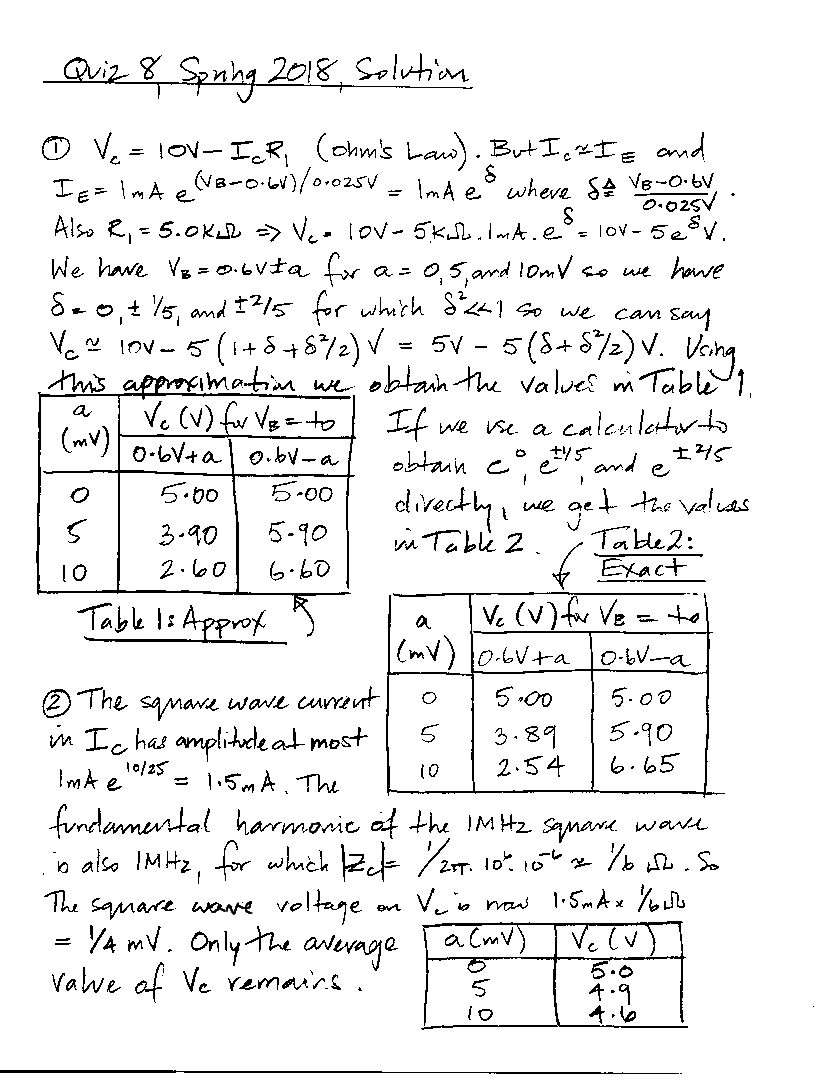 Quiz 8, Spring 2018, Solution
① Vc = 10V – IcR1 (Ohm's Law). But Ic ≈ IE and
IE = 1mA e^(VB-0.6V)/0.025V = 1mA e^δ where δ ≜ (VB-0.6V)/0.025V.
Also R1 = 5.0kΩ => Vc = 10V – 5kΩ.1mA.e^δ = 10V – 5e^δ V.
We have VB = 0.6V±a for a = 0, 5, and 10mV so we have
δ = 0, ± 1/5, and ±2/5 for which δ²<<1 so we can say
Vc ≈ 10V – 5(1+δ+δ²/2)V = 5V – 5(δ+δ²/2)V. Using
this approximation we obtain the values in Table 1.
a (mV) Vc (V) for VB = to
0.6V+a 0.6V–a
0 5.00 5.00
5 3.90 5.90
10 2.60 6.60
Table 1: Approx
If we use a calculator to
obtain e^0, e^±1/5, and e^±2/5
directly, we get the values
in Table 2.
Table 2:
Exact
a (mV) Vc (V) for VB = to
0.6V+a 0.6V–a
0 5.00 5.00
5 3.89 5.90
10 2.54 6.65
② The square wave current
in Ic has amplitude at most
1mA e^10/25 = 1.5mA. The
fundamental harmonic of the 1MHz square wave
is also 1MHz, for which |Zc| = 1/2π.10^6.10^-6 ≈ 1/6 Ω. So
The square wave voltage on Vc is now 1.5mA × 1/6Ω
= 1/4 mV. Only the average
value of Vc remains.
a (mV) Vc (V)
0 5.0
5 4.9
10 4.6